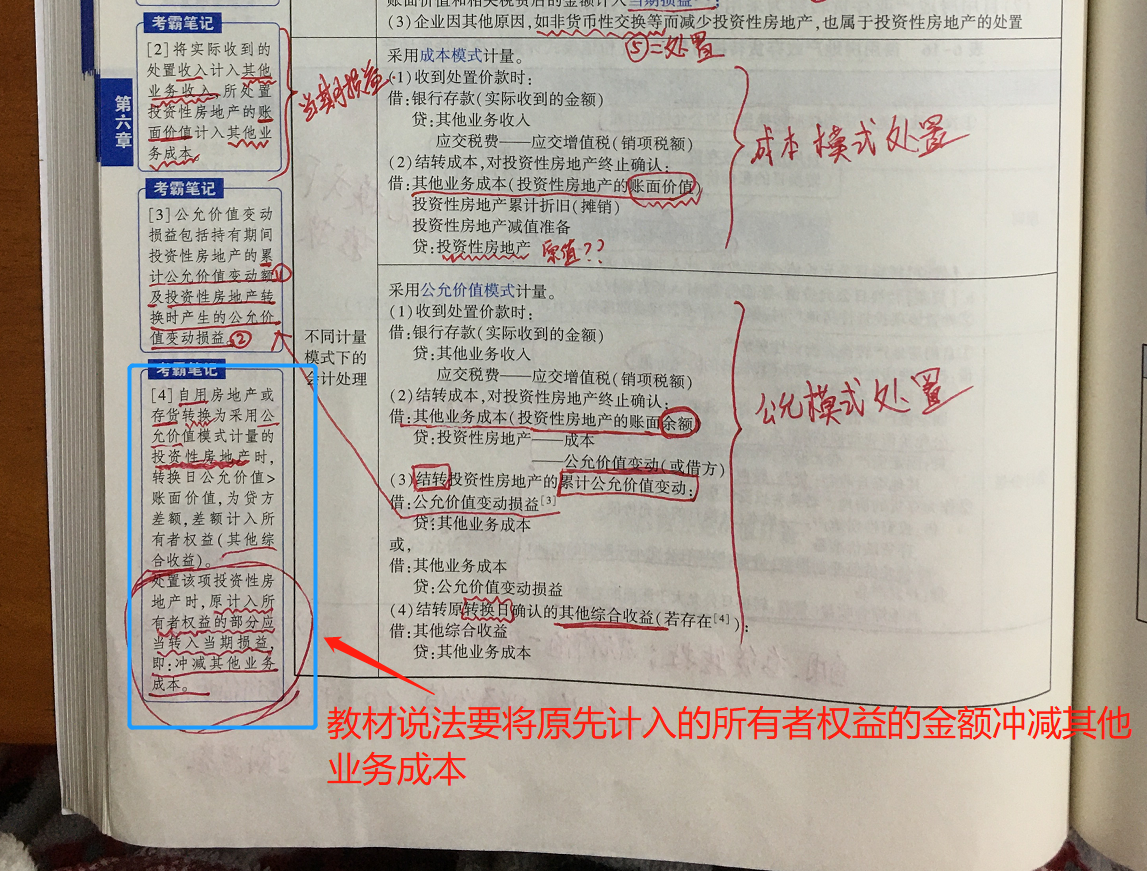 考霸笔记
[2]将实际收到的
处置收入计入其他
业务收入,所处置
投资性房地产的账
面价值计入其他业
务成本。
当期损益
第六章
考霸笔记
[3]公允价值变动
损益包括持有期间
投资性房地产的累
计公允价值变动额①
及投资性房地产转
换时产生的公允价
值变动损益。②
考霸笔记
[4]自用房地产或
存货转换为采用公
允价值模式计量的
投资性房地产时,
转换日公允价值>
账面价值,为贷方
差额,差额计入所
有者权益(其他综
合收益)。
处置该项投资性房
地产时,原计入所
有者权益的部分应
当转入当期损益,
即:冲减其他业务
成本。
不同计量
模式下的
会计处理
账面价值和相关税费后的金额计入当期损益
(3)企业因其他原因,如非货币性交换等而减少投资性房地产,也属于投资性房地产的处置
⑤=处置
采用成本模式计量。
(1)收到处置价款时:
借:银行存款(实际收到的金额)
贷:其他业务收入
应交税费——应交增值税(销项税额)
(2)结转成本,对投资性房地产终止确认:
借:其他业务成本(投资性房地产的账面价值)
投资性房地产累计折旧(摊销)
投资性房地产减值准备
贷:投资性房地产 原值??
成本模式处置
采用公允价值模式计量。
(1)收到处置价款时:
借:银行存款(实际收到的金额)
贷:其他业务收入
应交税费——应交增值税(销项税额)
(2)结转成本,对投资性房地产终止确认:
借:其他业务成本(投资性房地产的账面余额)
贷:投资性房地产——成本
——公允价值变动(或借方)
(3)结转投资性房地产的累计公允价值变动:
借:公允价值变动损益[3]
贷:其他业务成本
或,
借:其他业务成本
贷:公允价值变动损益
(4)结转原转换日确认的其他综合收益(若存在[4]):
借:其他综合收益
贷:其他业务成本
公允模式处置
教材说法要将原先计入的所有者权益的金额冲减其他
业务成本